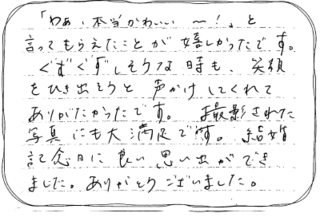 「わぁ、本当かわいい〜！」と
言ってもらえたことが嬉しかったです。
ぐずぐずしそうな時も、笑顔
をひき出そうと声かけしてくれて
ありがたかったです。撮影された
写真にも大満足です。結婚
記念日に良い思い出ができ
ました。ありがとうございました。